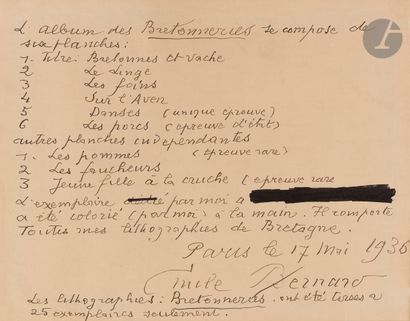 L'album des Bretonneries se compose de
six planches:
1. Titre: Bretonnes et vache
2 Le Linge
3 Les foins
4 Sur l'Aven
5 Danses (unique épreuve)
6 Les porcs (epreuve d'état)
autres planches indépendantes
1. Les pommes (épreuve rare)
2 Les faucheurs
3 Jeune fille à la cruche (epreuve rare
L'exemplaire par moi a
a été colorié (par moi) à la main. Il comporte
Toutes mes lithographies de Bretagne.
Paris le 17 Mai 1936
Emile Bernard
Les lithographies: Bretonneries. ont été tirées a
25 exemplaires seulement.